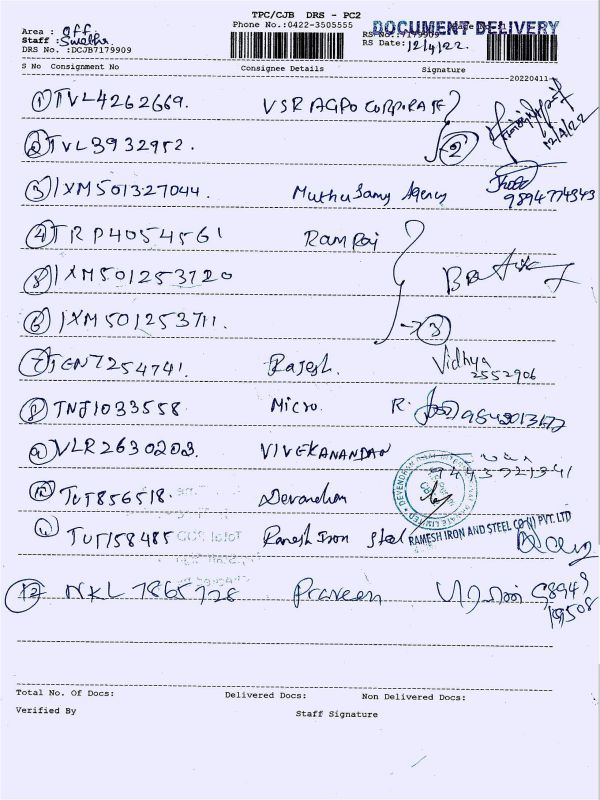 TPC/CJB DRS - PC2
Phone No.:0422-3505555
DOCUMENT DELIVERY
Area : off
Staff : Swathi
DRS No. :DCJB7179909
RS No.:7179909
RS Date: 12/4/22.
S No Consignment No Consignee Details Signature
20220411
1 TVL4262669. VSR AGRO CORPORATE
12/4/22
2 TVL3932952. 2
3 IXM501327044. Muthu Samy Agency
9894774343
4 TRP4054561 Ramraj
5 IXM501253720
6 IXM501253711. → 3
7 TEN7254741. Rajesh. Vidhya
2552906
8 TNJ1033558 Micro. R.
9 VLR2630203. VIVEKANANDAN
10 TUT856518. Devandran
11 TUT158485 Ramesh Iron Steel RAMESH IRON AND STEEL CO (I) PVT. LTD
12 NKL7865728 Praveen
Total No. Of Docs: Delivered Docs: Non Delivered Docs:
Verified By Staff Signature